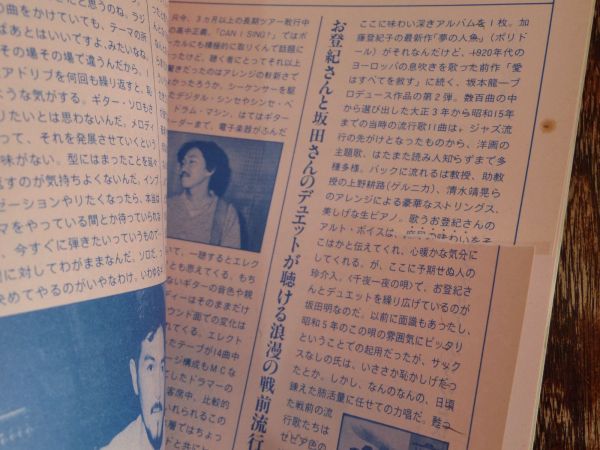 お登紀さんと坂田さんのデュエットが聴ける浪漫の戦前流行
ここに味わい深きアルバムを1枚。加
藤登紀子の最新作『夢の人魚』(ポリド
ール)がそれなんだけど、1920年代の
ヨーロッパの息吹きを歌った前作『愛
はすべてを赦す』に続く、坂本龍一プ
ロデュース作品の第2弾。数百曲の中
から選び出した大正3年から昭和15年
までの当時の流行歌11曲は、ジャズ流
行の先がけとなったものから、洋画の
主題歌、はたまた読み人知らずまで多
種多様。バックに流れるは教授、助教
授の上野耕路(ゲルニカ)、清水靖晃ら
のアレンジによる豪華なストリングス、
美しげな生ピアノ。歌うお登紀さんの
アルト・ボイスは、
の味わいをそ
こはかと伝えてくれ、心暖かな気分に
してくれる。が、ここに予期せぬ人の
珍介入。〈千夜一夜の唄〉で、お登紀さ
んとデュエットを繰り広げているのが
坂田明なのだ。以前に面識もあったし、
昭和5年のこの唄の雰囲気にピッタリ
ということでの起用だったが、サック
スなしの氏は、いささか恥かしげだっ
たとか。しかし、なんのなんの、日頃
錬えた肺活量に任せての力唱だ。甦っ
た戦前の流
行歌たちは
セピア色の
只今、3カ月以上の長期ツアー敢行中
の高中正義。「CAN I SING?」ではボ
ーカルにも積極的に取りくんで話題に
ったけど、聴く者にとってそれ以上
驚きだったのはアレンジの斬新さで
かったろうか。シーケンサーを駆
たデジタル・シンセやシンセ・ベ
、ドラム・マシン、はてはギター
ーダーまで、電子楽器がふんだ
いて、一聴するとエレク
とも思えてくる。もち
いギターの音色や親
ディーはそのままだけ
ウンド面での変化は
れてくる。エレクト
ったテープが14曲中
ージ構成もMCな
としたドラマーの
客席中、比較的
いれられるこの
ご層ではちょっ
ドと共に
たと思うのね。ラジ
の曲をかけていても、テーマの所
ばあとはいいですよ、みたいなね。
その場その場で違うんだから、1
アドリブを何回も繰り返すと、恥
ような気がする。ギター・ソロもさ
りたいとは思わないんだ。メロディ
って、それを発展させていくという
味がない。型にはまったことを延々
返すのが気持ちよくないんだ。インプ
ゼーションやりたくなったら、本当は
マをやっている間とか待っていられな
、今すぐに弾きたいっていうもので
に対してわがままなんだ。ソロと
決めてやるのがいやなわけ。いわゆる